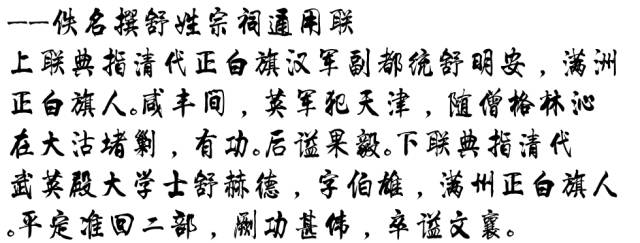 ——佚名撰舒姓宗祠通用联
上联典指清代正白旗汉军副都统舒明安，满洲
正白旗人。咸丰间，英军犯天津，随僧格林沁
在大沽堵剿，有功。后谥果毅。下联典指清代
武英殿大学士舒赫德，字伯雄，满州正白旗人
。平定准回二部，劂功甚伟，卒谥文襄。